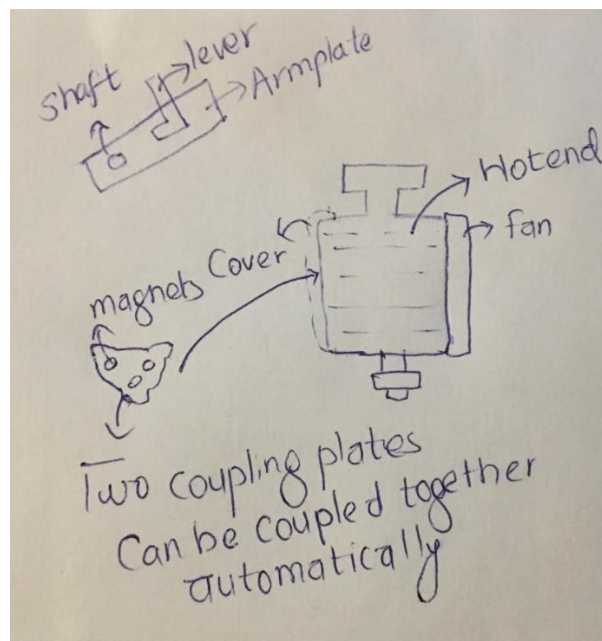 lever
shaft
Armplate
Hotend
fan
Cover
magnets
Two coupling plates
Can be coupled together
automatically